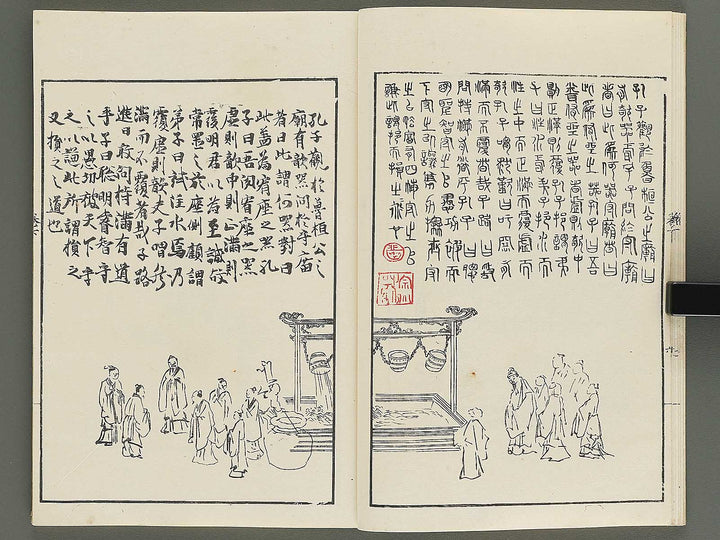 孔子觀於魯桓公之廟
有欹器焉孔子問於守廟
者曰此為何器守廟者曰
此蓋為宥坐之器孔子曰吾
聞宥坐之器者虛則欹中
則正滿則覆孔子顧謂弟
子曰注水焉弟子挹水而
注之中而正滿而覆虛而
欹孔子喟然歎曰吁惡有
滿而不覆者哉子路曰敢
問持滿有道乎孔子曰聰
明聖智守之以愚功被天
下守之以讓勇力撫世守
之以怯富有四海守之以
謙此謂挹而損之之道也
孔子觀於魯桓公之
廟有欹器問於守廟
者曰此謂何器對曰
此蓋為宥座之器孔
子曰吾聞宥座之器
虛則欹中則正滿則
覆明君以為至誡故
常置之於座側顧謂
弟子曰試注水焉乃
覆虛則欹夫子喟然
滿而不覆者哉子路
進曰敢問持滿有道
乎子曰聰明睿智守
之以愚功被天下守
之以謙此所謂損之
又損之之道也